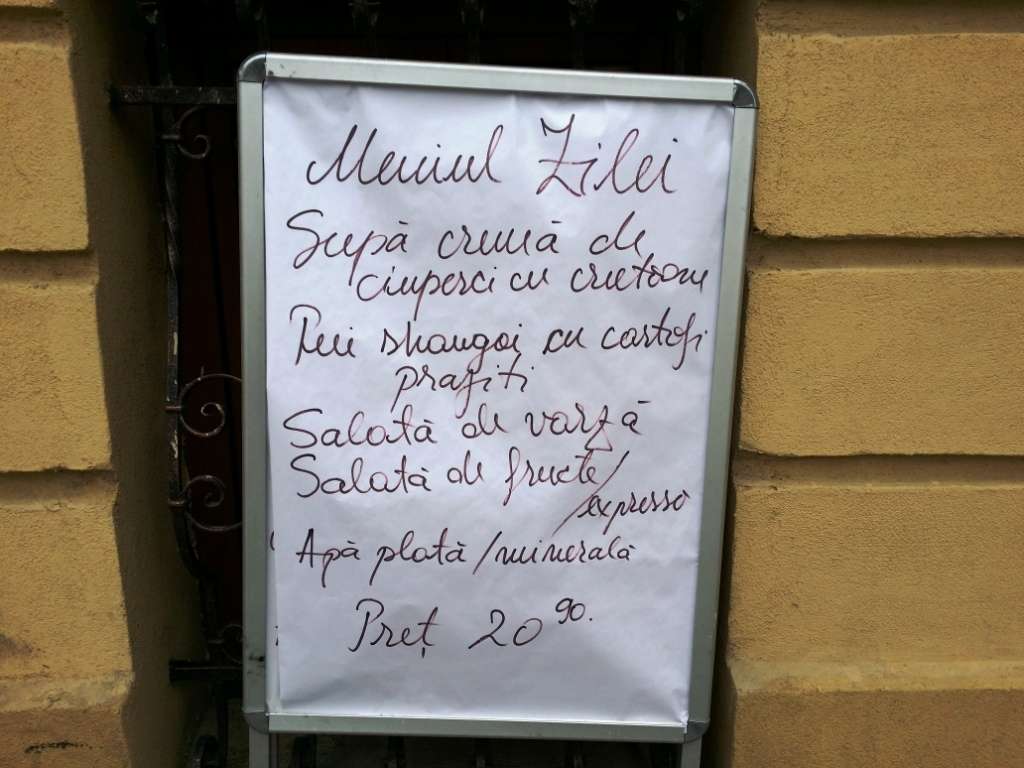 Meniul Zilei
Supă cremă de
ciuperci cu crutoane
Pui shangai cu cartofi
prăjiți
Salată de varză
Salată de fructe/
expresso
Apă plată/minerală
Preț 20 90.